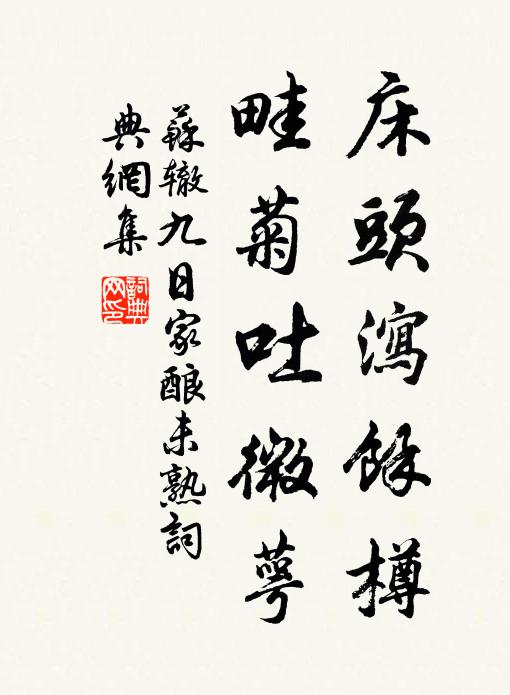 床頭瀉餘樽
畦菊吐微萼
蘇轍九日家釀未熟詞
典網集
詞典
网印